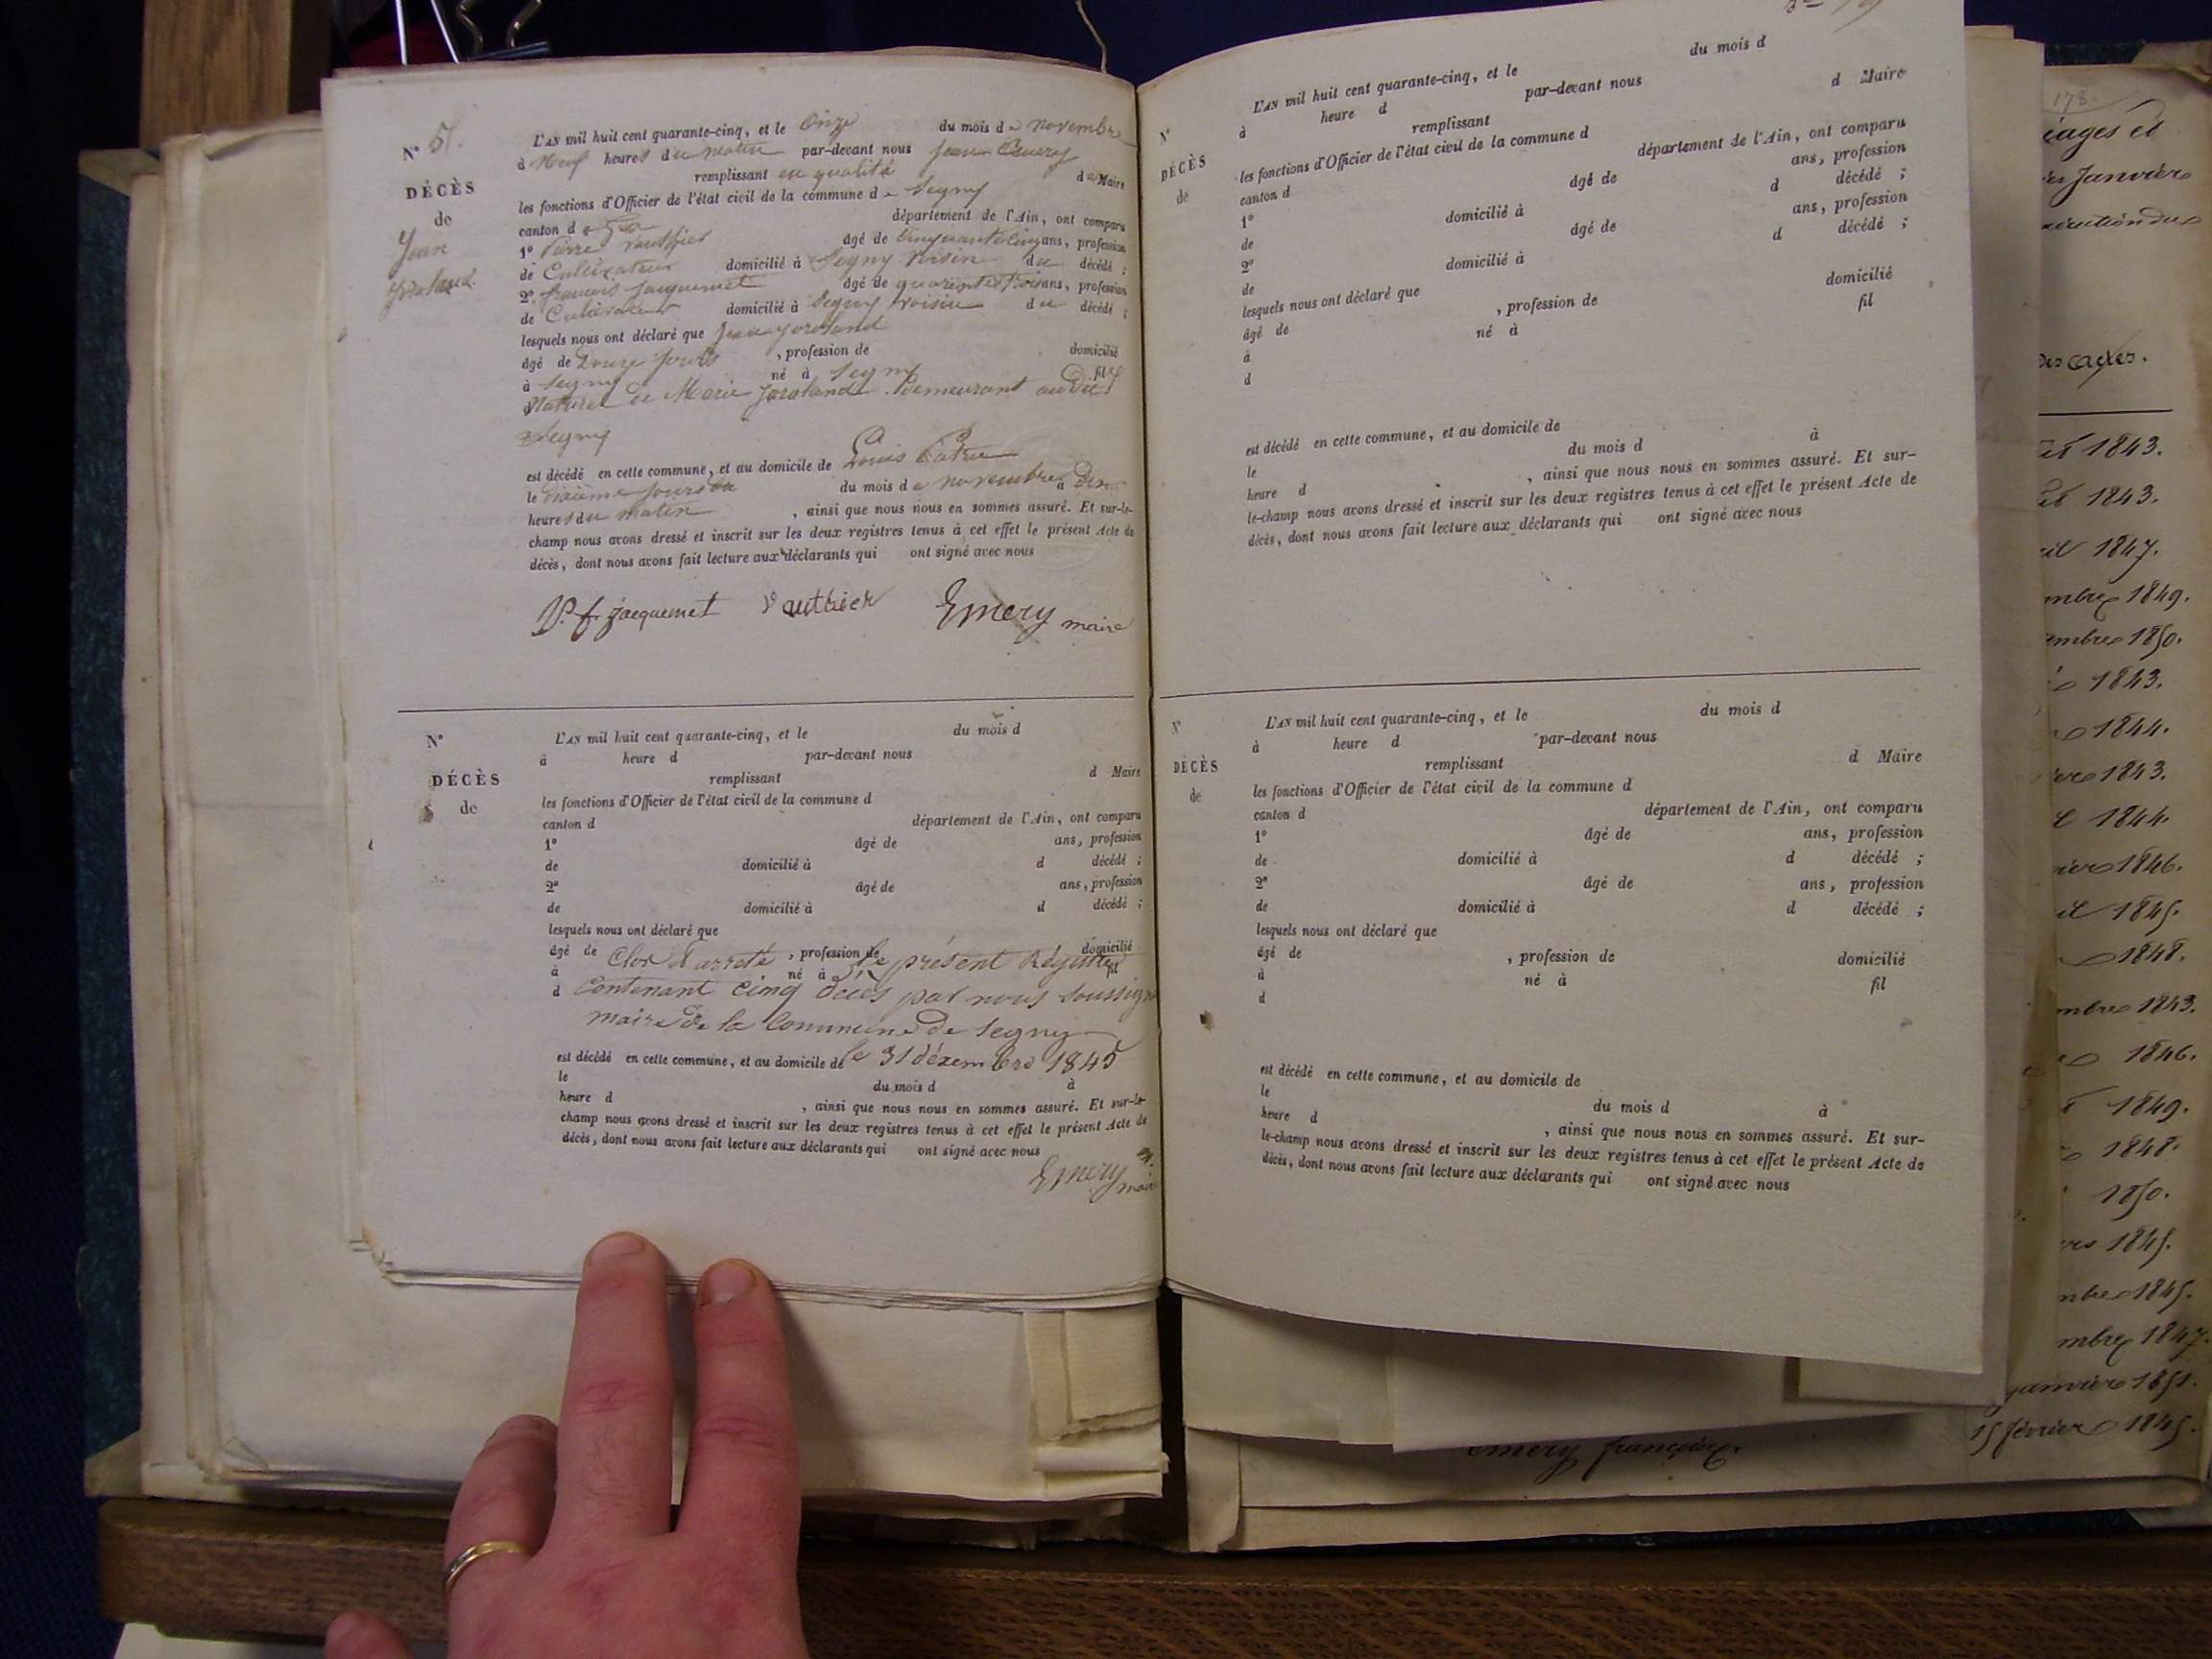 N° 5.
DÉCÈS
de
Jean
L'AN mil huit cent quarante-cinq, et le Onze du mois de novembre
à Neuf heures du matin par-devant nous Jean Emery
remplissant en qualité de Maire
les fonctions d'Officier de l'état civil de la commune de Segny
canton de Gex département de l'Ain, ont comparu
1° Pierre Vauthier âgé de Cinquante cinq ans, profession
de Cultivateur domicilié à Segny voisin du décédé ;
2° françois Jacquemet âgé de quarante trois ans, profession
de Cultivateur domicilié à Segny voisin du décédé ;
lesquels nous ont déclaré que Jean
âgé de Douze jours , profession de domicilié
à Segny né à Segny fils
Naturel de Marie Demeurant audit
Segny
est décédé en cette commune, et au domicile de Louis
le dixième jour du mois de novembre à
heures du matin , ainsi que nous nous en sommes assuré. Et sur-le-
champ nous avons dressé et inscrit sur les deux registres tenus à cet effet le présent Acte de
décès, dont nous avons fait lecture aux déclarants qui ont signé avec nous
P. f. jacquemet Vauthier Emery maire
N°
DÉCÈS
de
L'AN mil huit cent quarante-cinq, et le du mois d
à heure d par-devant nous
remplissant d Maire
les fonctions d'Officier de l'état civil de la commune d
canton d département de l'Ain, ont comparu
1° âgé de ans, profession
de domicilié à d décédé ;
2° âgé de ans, profession
de domicilié à d décédé ;
lesquels nous ont déclaré que
âgé de , profession de domicilié
Clos et arreté le présent Régistre
à né à fil
d Contenant cinq décès par nous soussigné
maire de la Commune de Segny
est décédé en cette commune, et au domicile de le 31 décembre 1845
le du mois d à
heure d , ainsi que nous nous en sommes assuré. Et sur-le-
champ nous avons dressé et inscrit sur les deux registres tenus à cet effet le présent Acte de
décès, dont nous avons fait lecture aux déclarants qui ont signé avec nous
Emery maire
N°
DÉCÈS
de
L'AN mil huit cent quarante-cinq, et le du mois d
à heure d par-devant nous
remplissant d Maire
les fonctions d'Officier de l'état civil de la commune d
canton d département de l'Ain, ont comparu
1° âgé de ans, profession
de domicilié à d décédé ;
2° âgé de ans, profession
de domicilié à d décédé ;
lesquels nous ont déclaré que
âgé de , profession de domicilié
à né à fil
d
est décédé en cette commune, et au domicile de
le du mois d à
heure d , ainsi que nous nous en sommes assuré. Et sur-
le-champ nous avons dressé et inscrit sur les deux registres tenus à cet effet le présent Acte de
décès, dont nous avons fait lecture aux déclarants qui ont signé avec nous
N°
DÉCÈS
de
L'AN mil huit cent quarante-cinq, et le du mois d
à heure d par-devant nous
remplissant d Maire
les fonctions d'Officier de l'état civil de la commune d
canton d département de l'Ain, ont comparu
1° âgé de ans, profession
de domicilié à d décédé ;
2° âgé de ans, profession
de domicilié à d décédé ;
lesquels nous ont déclaré que
âgé de , profession de domicilié
à né à fil
d
est décédé en cette commune, et au domicile de
le du mois d à
heure d , ainsi que nous nous en sommes assuré. Et sur-
le-champ nous avons dressé et inscrit sur les deux registres tenus à cet effet le présent Acte de
décès, dont nous avons fait lecture aux déclarants qui ont signé avec nous
178.
iages et
Janvier
des actes.
1843.
1843.
1847.
mbre 1849.
embre 1850.
1843.
1844.
1843.
1844.
1846.
1845.
1848.
mbre 1843.
1846.
1849.
1848.
1850.
1845.
mbre 1845.
mbre 1847.
janvier 1851.
emery françois. 15 février 1845.